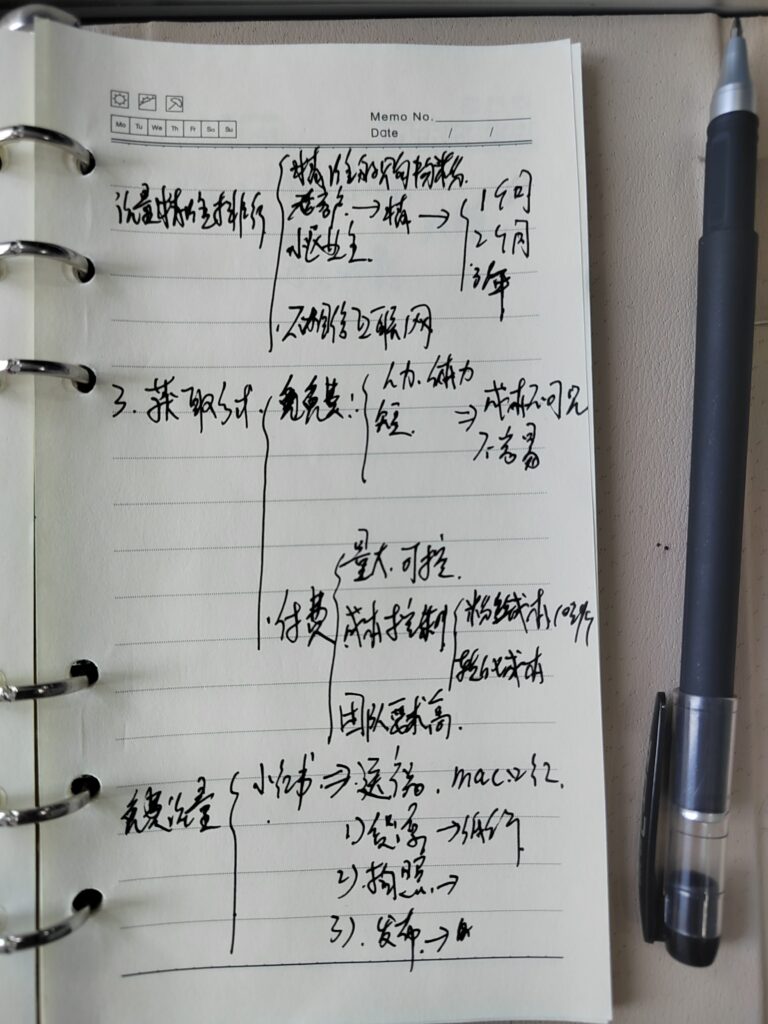 Memo No.
Mo Tu We Th Fr Sa Su
Date / /
流量精准排行
精准的
老客户 → 精 → 1个月
小区业主
2个月
3年
不相信互联网
3. 获取方式
免费:
人力、体力
短
⇒ 成本不可见
不容易
付费
量大、可控
成本控制
粉丝成本
转化成本
团队要求高
免费流量
小红书 ⇒
mac口红
1) 货源 →
2) 拍照 →
3) 发布 →